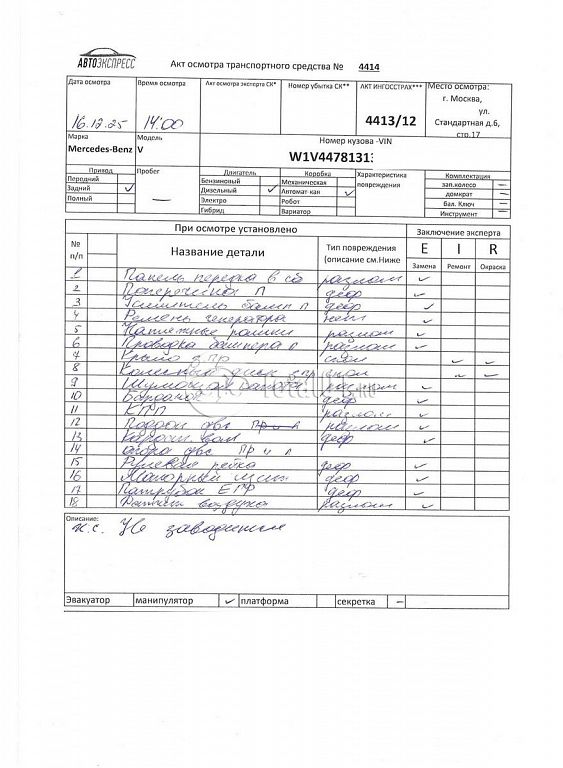 АВТОЭКСПРЕСС
Акт осмотра транспортного средства № 4414
Дата осмотра Время осмотра Акт осмотра эксперта СК* Номер убытка СК** АКТ ИНГОССТРАХ*** Место осмотра:
16.12.25 14:00 4413/12 г. Москва, ул. Стандартная д.6, стр.17
Марка Модель Номер кузова -VIN
Mercedes-Benz V W1V4478131
Привод Пробег Двигатель Коробка Характеристика повреждения Комплектация
Передний Бензиновый Механическая зап.колесо –
Задний ✓ – Дизельный ✓ Автомат-кая ✓ домкрат –
Полный Электро Робот бал. Ключ –
Гибрид Вариатор Инструмент –
При осмотре установлено Заключение эксперта
№ п/п Название детали Тип повреждения (описание см.Ниже E I R
Замена Ремонт Окраска
1 Панель передка в сб разлом ✓
2 Поперечина П деф ✓
3 Усилитель бамп п деф ✓
4 Ремень генератора ✓
5 Натяжные ролики разлом ✓
6 Проводка бампера п разлом ✓
7 Крыло п пр ✓ ✓
8 Колесный диск п пр – ✓
9 разлом ✓
10 деф ✓
11 КПП разлом ✓
12 Поддон двс разлом ✓
13 Карден вал деф ✓
14 Опора двс Пр и л
15 Рулевая рейка деф ✓
16 деф ✓
17 Патрубок ЕГР деф ✓
18 воздуха разлом ✓
Описание:
н.с. Не заводится
Эвакуатор манипулятор ✓ платформа секретка –